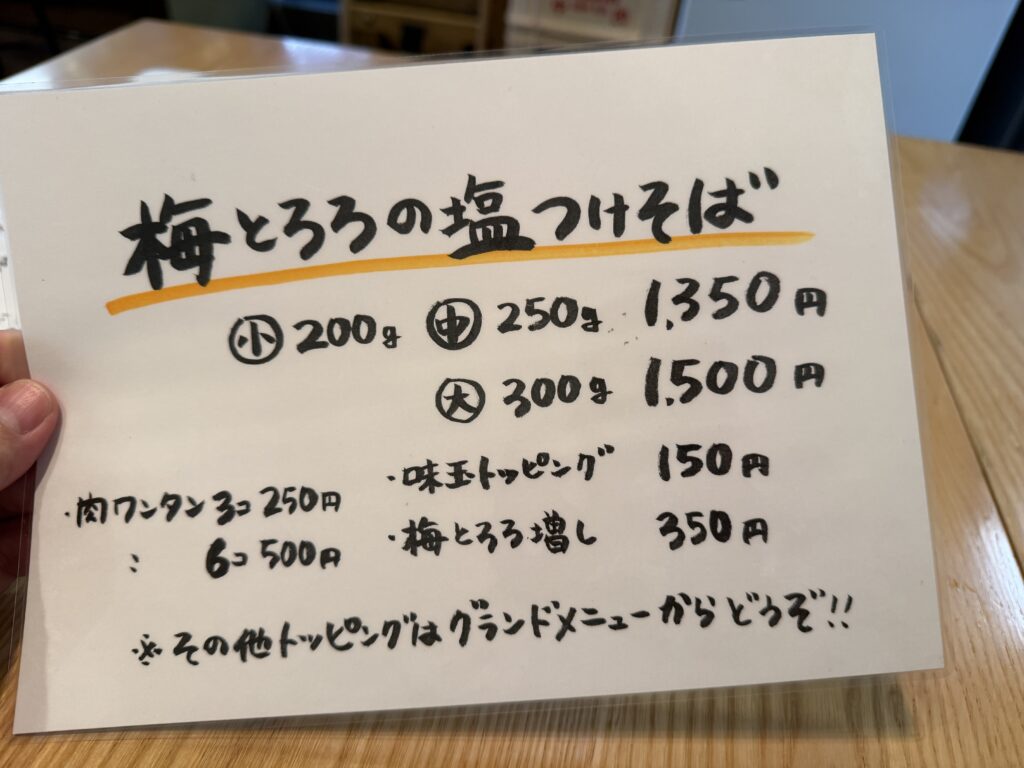 梅とろろの塩つけそば
㊥小 200g ㊥ 250g 1,350円
大 300g 1,500円
・味玉トッピング 150円
・肉ワンタン 3コ 250円
・梅とろろ増し 350円
: 6コ 500円
※その他トッピングはグランドメニューからどうぞ!!